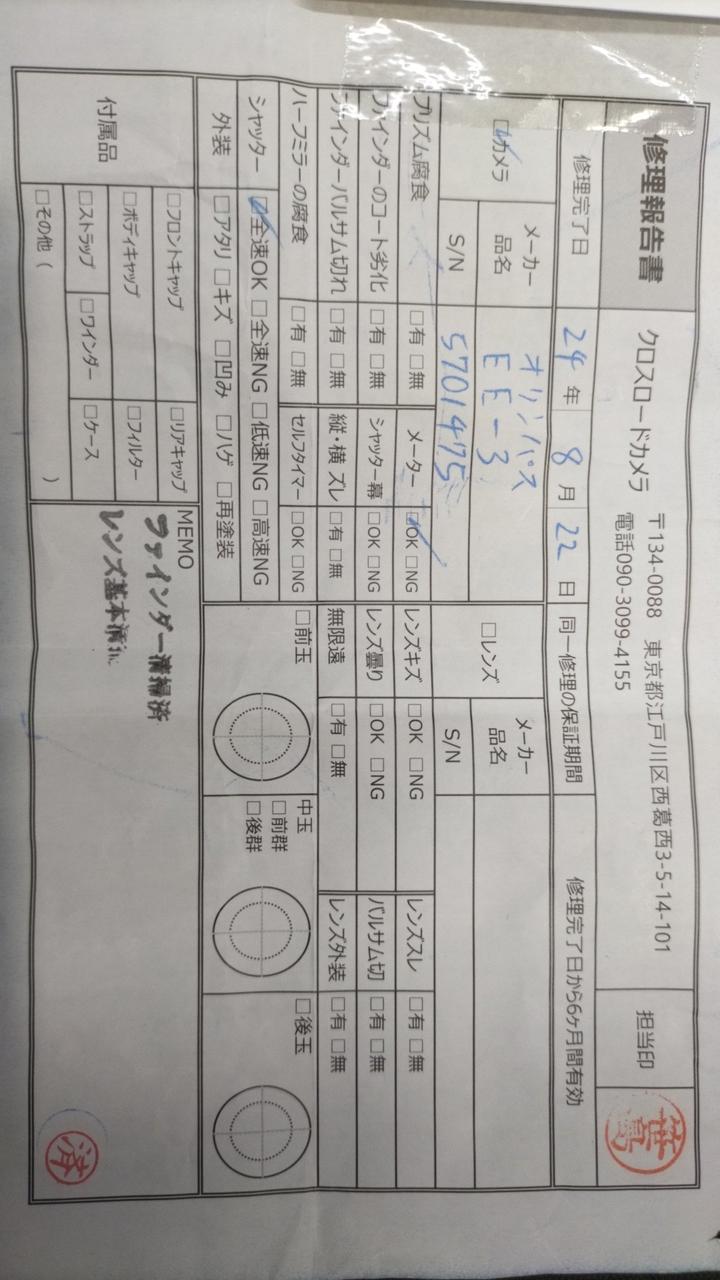 修理報告書
クロスロードカメラ 〒134-0088 東京都江戸川区西葛西3-5-14-101
電話090-3099-4155
担当印
修理完了日 24年 8月 22日 同一修理の保証期間 修理完了日から6ヶ月間有効
☑カメラ
メーカー オリンパス
品名 EE-3
S/N 5701475
□レンズ
メーカー
品名
S/N
プリズム腐食 □有 □無 メーター ☑OK □NG レンズキズ □OK □NG レンズスレ □有 □無
ファインダーのコート劣化 □有 □無 シャッター幕 □OK □NG レンズ曇り □OK □NG バルサム切 □有 □無
ファインダーバルサム切れ □有 □無 縦・横 ズレ □有 □無 無限遠 □有 □無 レンズ外装 □有 □無
ハーフミラーの腐食 □有 □無 セルフタイマー □OK □NG
□前玉
中玉
□前群
□後群
□後玉
シャッター ☑全速OK □全速NG □低速NG □高速NG
外装 □アタリ □キズ □凹み □ハゲ □再塗装
付属品
□フロントキャップ □リアキャップ
□ボディキャップ □フィルター
□ストラップ □ワインダー □ケース
□その他 ( )
MEMO
ファインダー清掃済
レンズ基本清
済